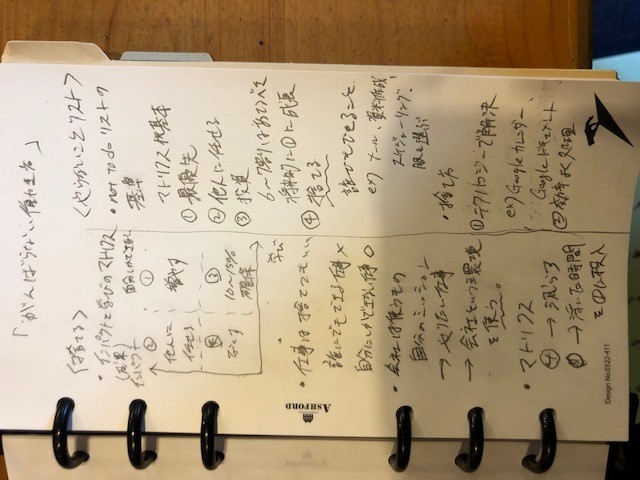 「がんばらない働き方」
〈捨てる〉
・インパクトと学びのマトリクス
(成果)
インパクト
自分しかできない
②
①
他人に
任せる
増やす
④
③
なくす
10~15%
確保
学び
・仕事は捨ててもいい
誰にでもできる仕事 ×
自分にしかできない仕事 ○
・会社は使うもの
自分のミッション
→ やりたい仕事
→ 会社という環境
を使う。
・マトリクス
④ → 減らす
→ 浮いた時間
を①に投入
〈やらないことリスト〉
・not to do リストの
基準
マトリクスが基本
① 最優先
② 他人に任せる
③ 投資
6~7割はあてるべき
将来的に①に成長
④ 捨てる
誰でもできること
ex) メール、資料作成、
スケジューリング、
服を選ぶ
・捨て方
① テクノロジーで解決
ex) Google カレンダー、
Google ドキュメント
② 効率よく処理
ASHFORD
Design No.0322-411